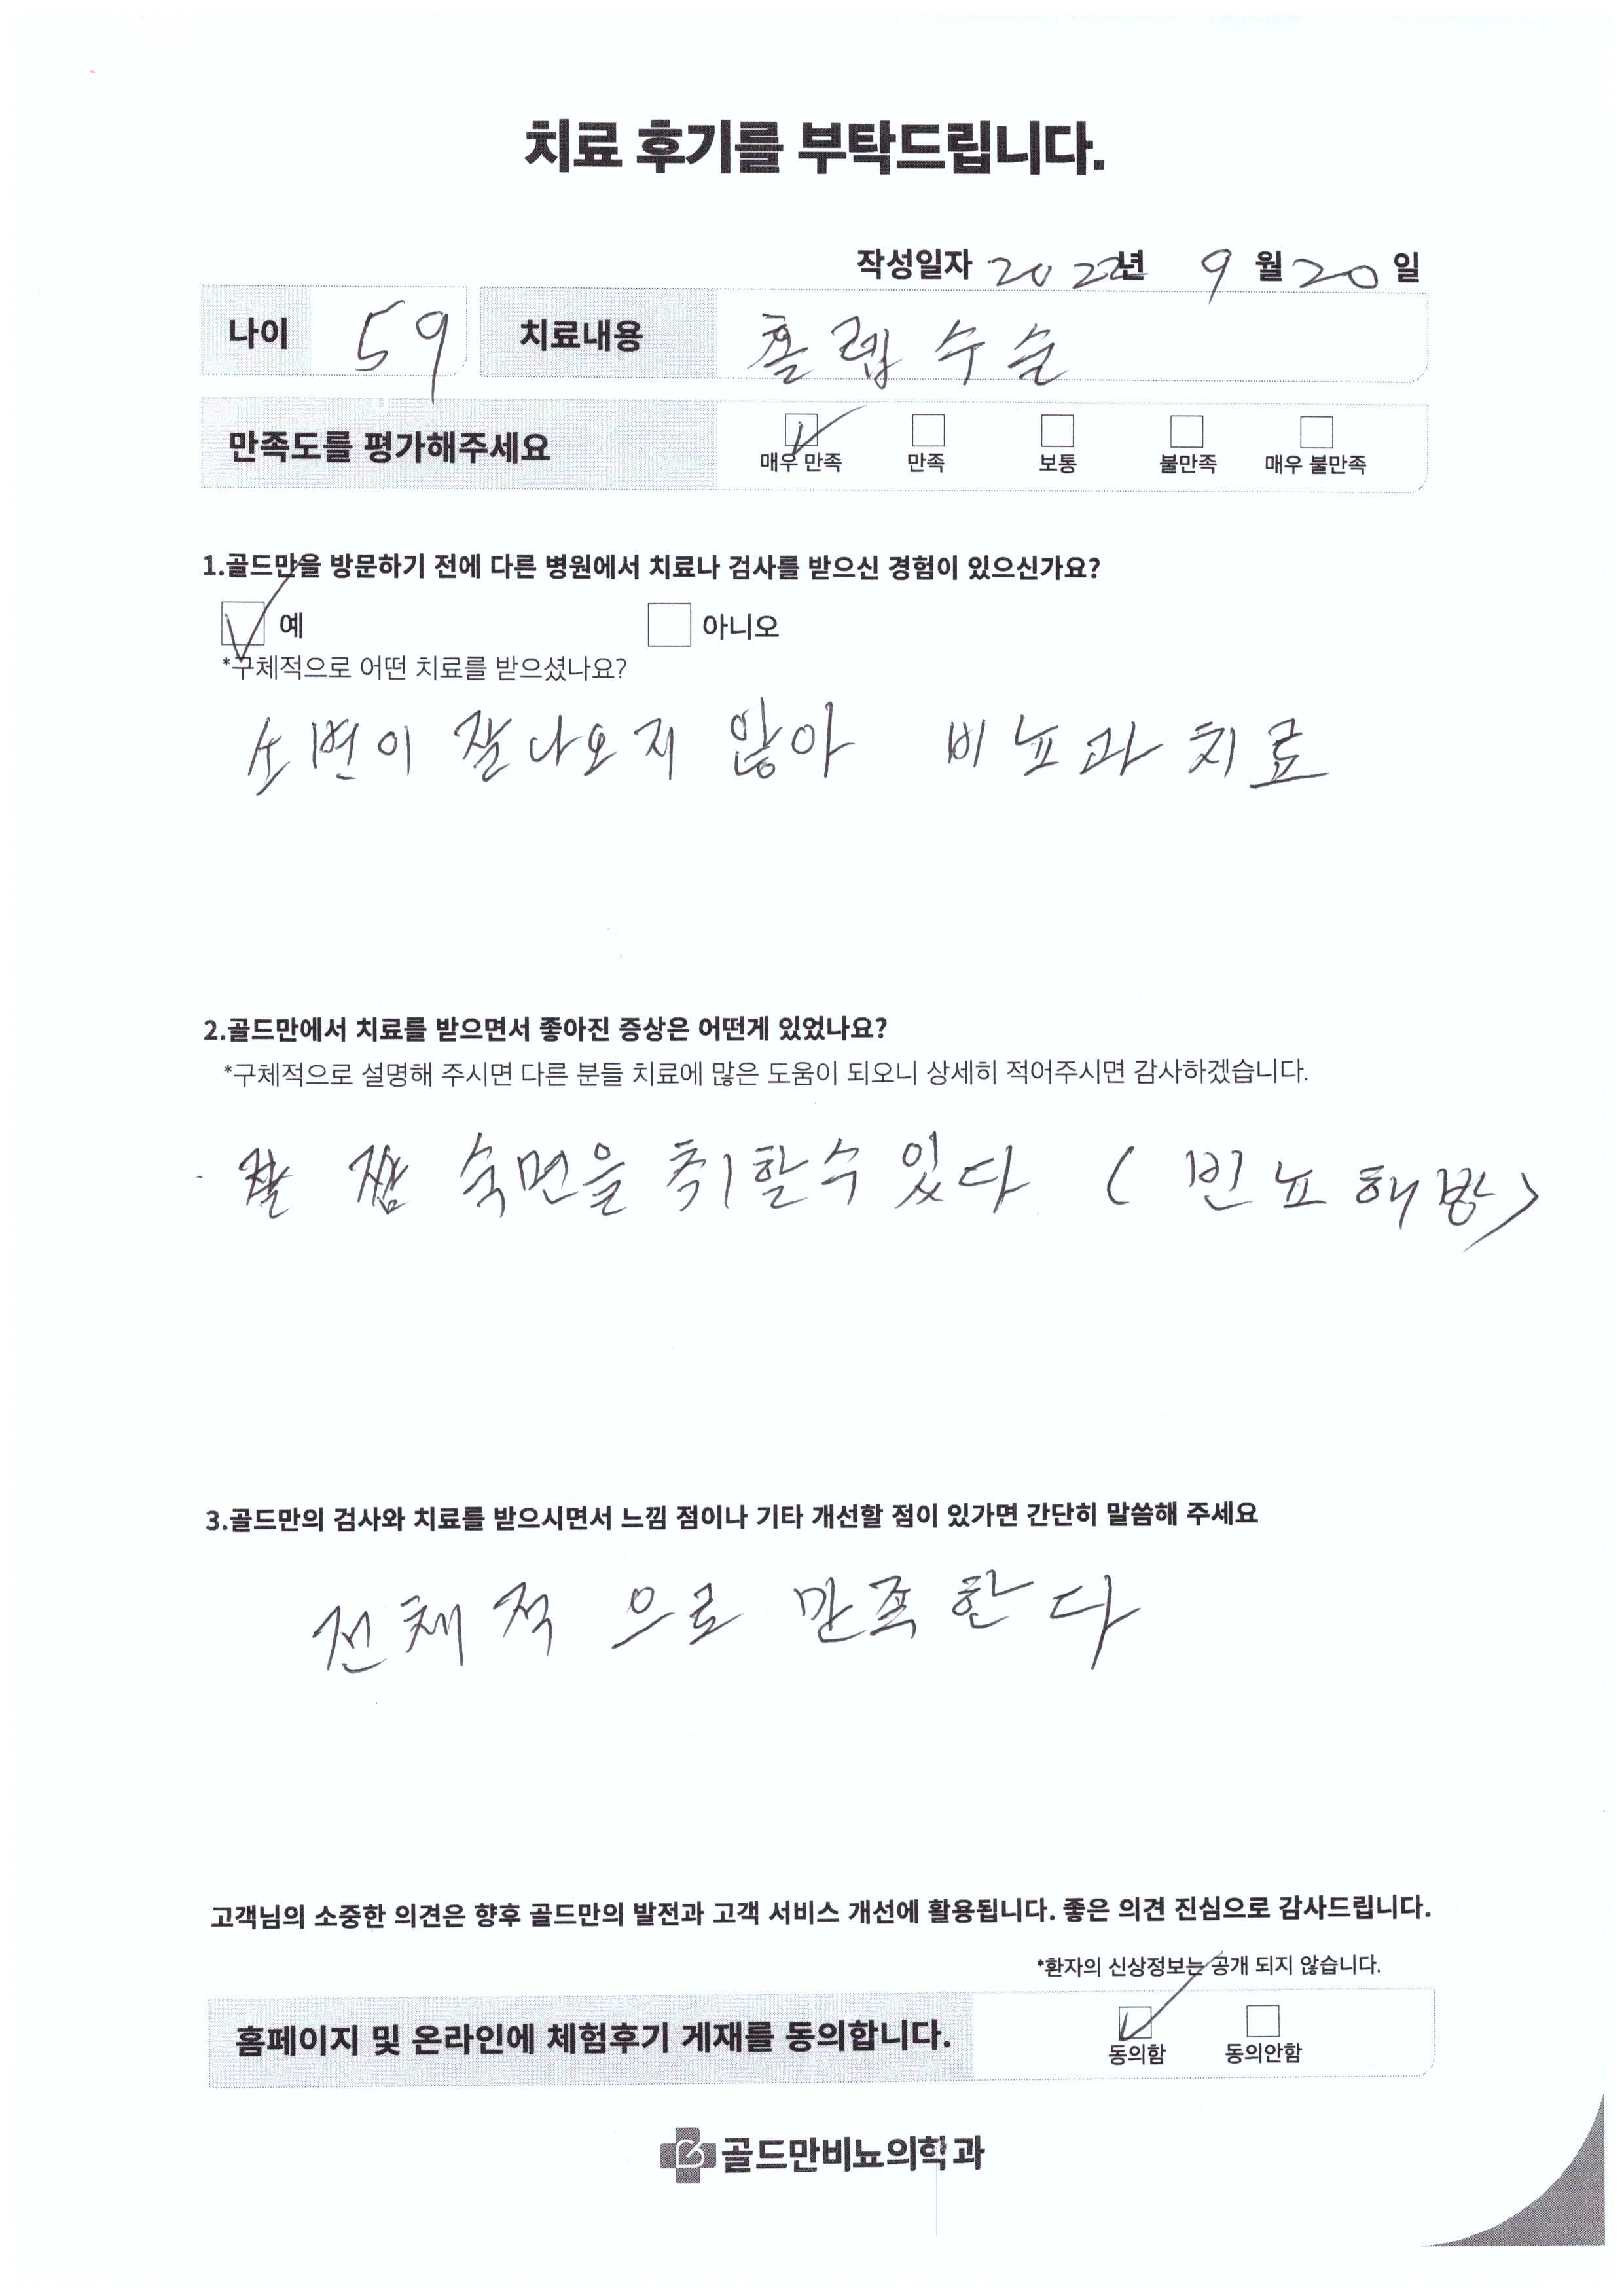 치료 후기를 부탁드립니다.
작성일자 2022년 9월 20일
나이 59 치료내용 홀렙수술
만족도를 평가해주세요 매우 만족 만족 보통 불만족 매우 불만족
1.골드만을 방문하기 전에 다른 병원에서 치료나 검사를 받으신 경험이 있으신가요?
예 아니오
*구체적으로 어떤 치료를 받으셨나요?
소변이 잘나오지 않아 비뇨과 치료
2.골드만에서 치료를 받으면서 좋아진 증상은 어떤게 있었나요?
*구체적으로 설명해 주시면 다른 분들 치료에 많은 도움이 되오니 상세히 적어주시면 감사하겠습니다.
숙면을 취할수 있다 (빈뇨 해방)
3.골드만의 검사와 치료를 받으시면서 느낌 점이나 기타 개선할 점이 있가면 간단히 말씀해 주세요
전체적 으로 만족한다
고객님의 소중한 의견은 향후 골드만의 발전과 고객 서비스 개선에 활용됩니다. 좋은 의견 진심으로 감사드립니다.
*환자의 신상정보는 공개 되지 않습니다.
홈페이지 및 온라인에 체험후기 게재를 동의합니다. 동의함 동의안함
골드만비뇨의학과